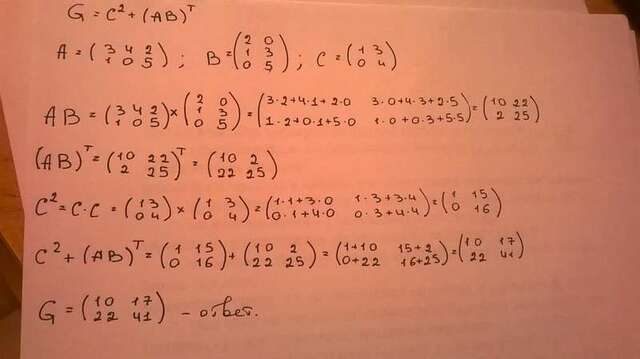 G = C² + (AB)ᵀ
A = (3 4 2 / 1 0 5) ; B = (2 0 / 1 3 / 0 5) ; C = (1 3 / 0 4)
AB = (3 4 2 / 1 0 5) × (2 0 / 1 3 / 0 5) = (3·2+4·1+2·0 3·0+4·3+2·5 / 1·2+0·1+5·0 1·0+0·3+5·5) = (10 22 / 2 25)
(AB)ᵀ = (10 22 / 2 25)ᵀ = (10 2 / 22 25)
C² = C·C = (1 3 / 0 4) × (1 3 / 0 4) = (1·1+3·0 1·3+3·4 / 0·1+4·0 0·3+4·4) = (1 15 / 0 16)
C² + (AB)ᵀ = (1 15 / 0 16) + (10 2 / 22 25) = (1+10 15+2 / 0+22 16+25) = (10 17 / 22 41)
G = (10 17 / 22 41) – ответ.